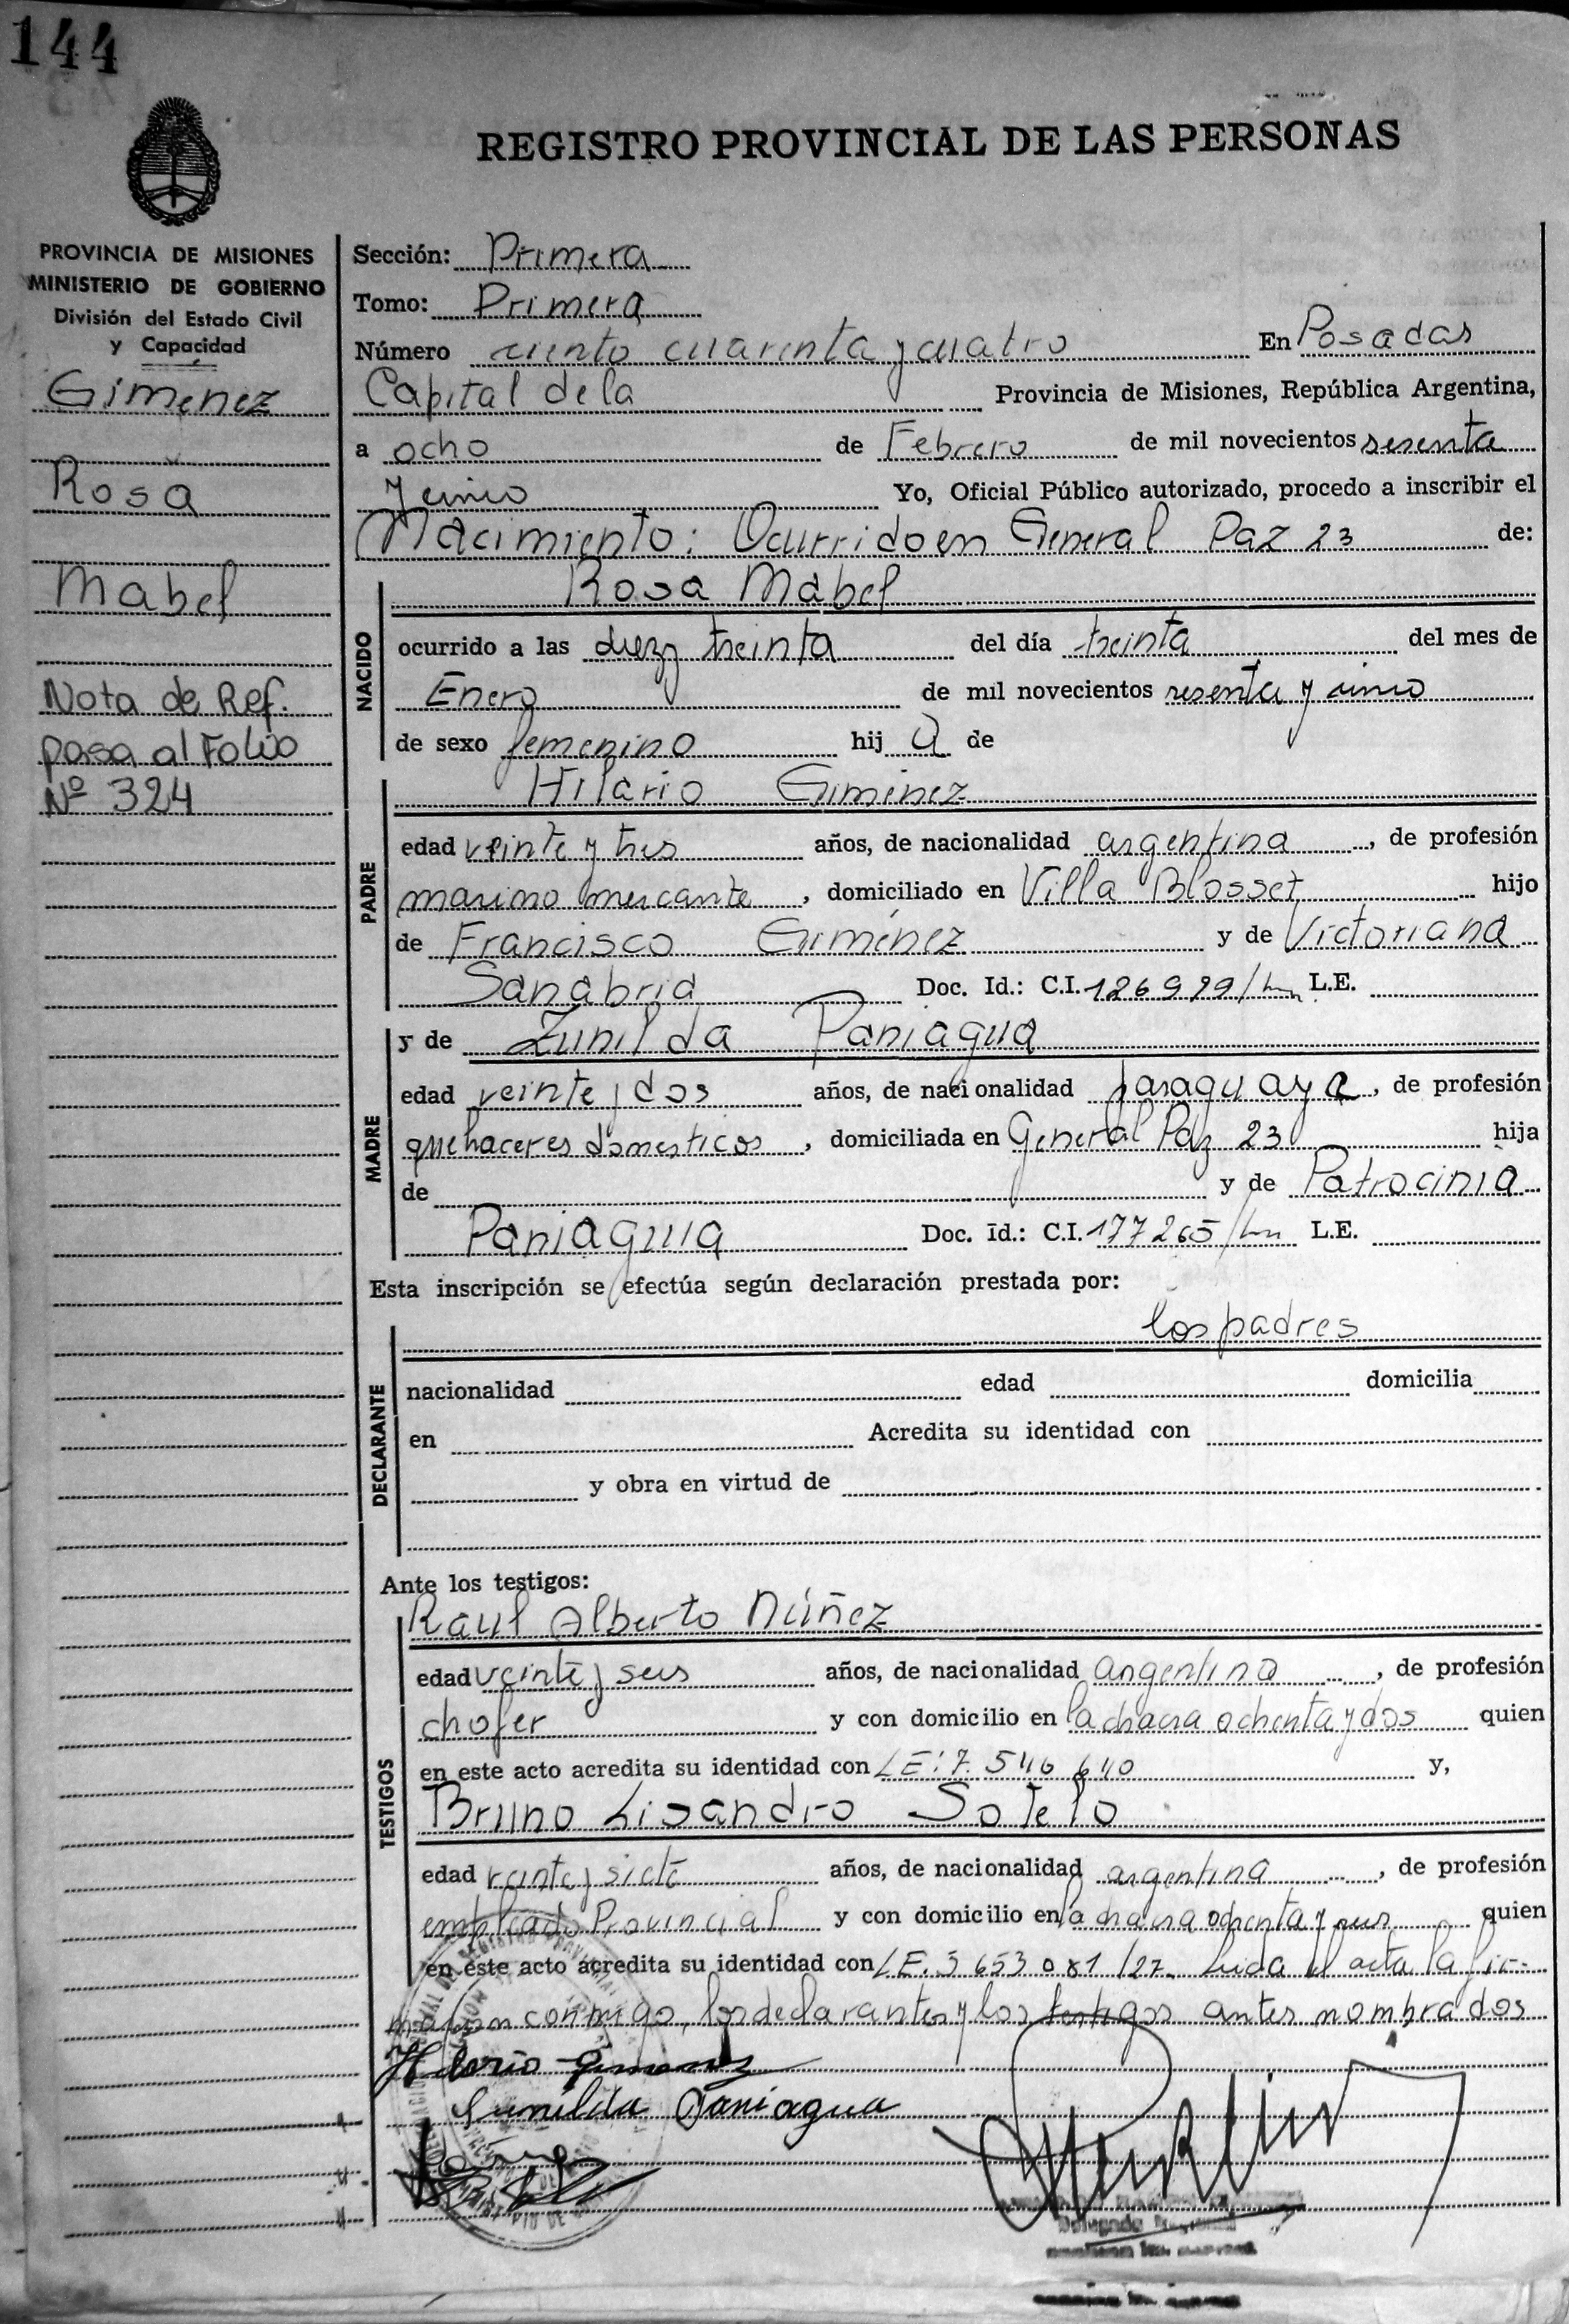 144
REGISTRO PROVINCIAL DE LAS PERSONAS
PROVINCIA DE MISIONES
MINISTERIO DE GOBIERNO
División del Estado Civil
y Capacidad
Gimenez
Rosa
Mabel
Nota de Ref.
pasa al Folio
Nº 324
Sección: Primera
Tomo: Primera
Número ciento cuarenta y cuatro En Posadas
Capital de la Provincia de Misiones, República Argentina,
a ocho de Febrero de mil novecientos sesenta
y cinco Yo, Oficial Público autorizado, procedo a inscribir el
Nacimiento: Ocurrido en General Paz 23 de:
NACIDO
Rosa Mabel
ocurrido a las diez y treinta del día treinta del mes de
Enero de mil novecientos sesenta y cinco
de sexo femenino hij a de
PADRE
Hilario Giménez
edad veinte y tres años, de nacionalidad argentina, de profesión
marino mercante, domiciliado en Villa Blosset hijo
de Francisco Giménez y de Victoriana
Sanabria Doc. Id.: C.I. 126929/ L.E.
MADRE
y de Zunilda Paniagua
edad veinte y dos años, de nacionalidad paraguaya, de profesión
quehaceres domesticos, domiciliada en General Paz 23 hija
de y de Patrocinia
Paniagua Doc. Id.: C.I. 177265/ L.E.
Esta inscripción se efectúa según declaración prestada por:
DECLARANTE
los padres
nacionalidad edad domicilia
en Acredita su identidad con
y obra en virtud de
Ante los testigos:
TESTIGOS
Raul Alberto Núñez
edad veinte y seis años, de nacionalidad argentina, de profesión
chofer y con domicilio en la chacra ochenta y dos quien
en este acto acredita su identidad con LE: 7.546 640 y,
Bruno Lisandro Sotelo
edad veinte y siete años, de nacionalidad argentina, de profesión
empleado Provincial y con domicilio en la chacra ochenta y seis quien
en este acto acredita su identidad con LE. 5 653 081 /27. Leida el acta la fir-
maron conmigo, los declarantes y los testigos antes nombrados
Hilario Gimenez
Zunilda Paniagua